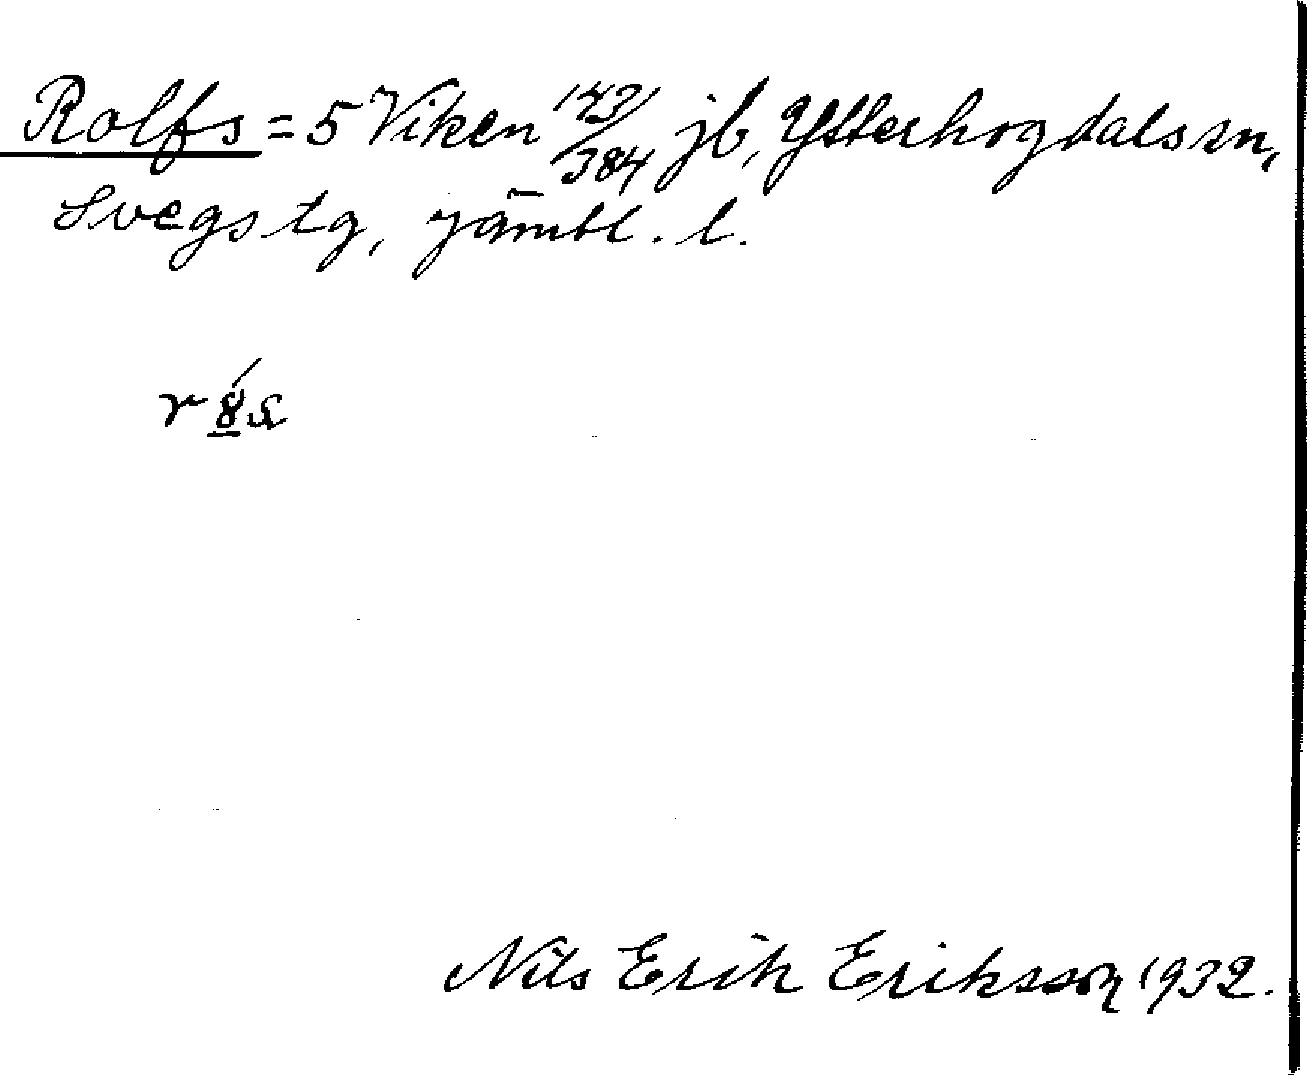 Rolfs = 5 Viken 173/384 jb, Ytterhogdals sn,
Svegs tg, Jämtl. l.
Nils Erik Eriksson 1932.